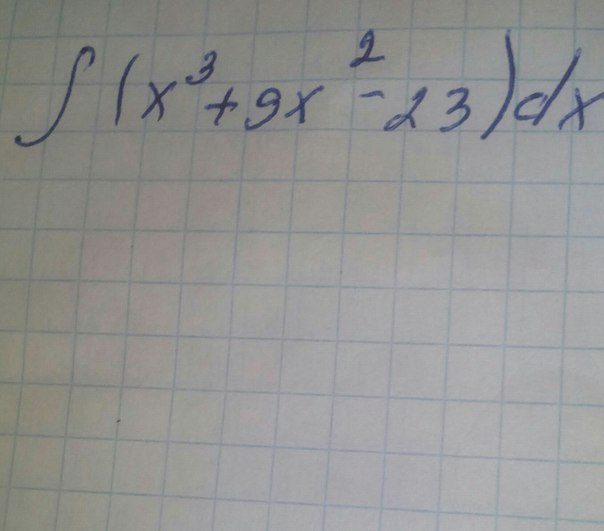 ∫(x³+9x²-23)dx